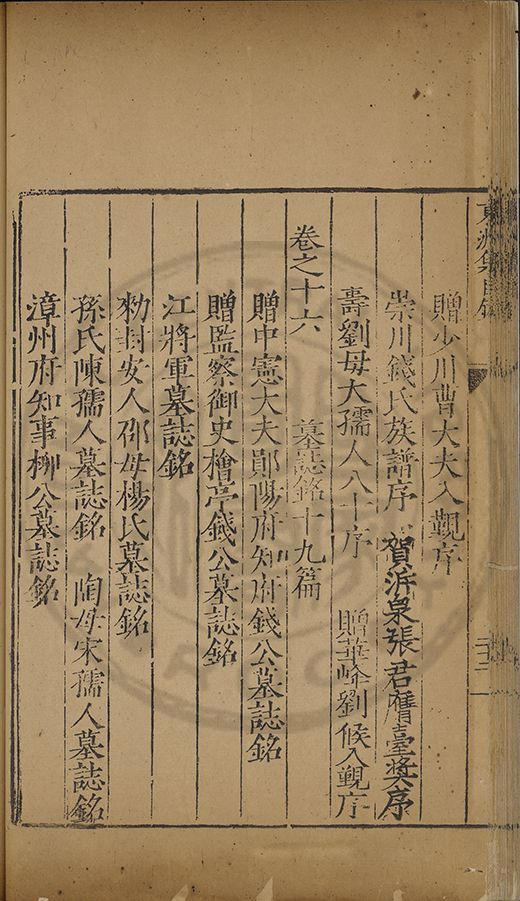 東洲集目錄
贈少川曹大夫入覲序
崇川錢氏族譜序 賀泝泉張君膺臺奬序
壽劉母大孺人八十序 贈華峰劉候入覲序
卷之十六 墓誌銘十九篇
贈中憲大夫鄖陽府知府錢公墓誌銘
贈監察御史檜亭錢公墓誌銘
江將軍墓誌銘
勑封安人邵母楊氏墓誌銘
孫氏陳孺人墓誌銘 陶母宋孺人墓誌銘
漳州府知事柳公墓誌銘